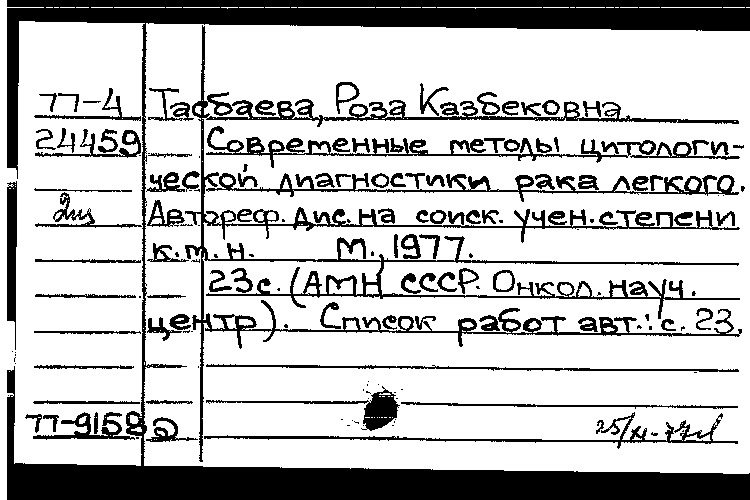 77-4 Тасбаева, Роза Казбековна.
24459 Современные методы цитологи-
ческой диагностики рака легкого.
Автореф. дис. на соиск. учен. степени
к.м.н. М., 1977.
23с. (АМН СССР. Онкол. науч.
центр). Список работ авт.: с. 23.
77-9158
25/XI-77